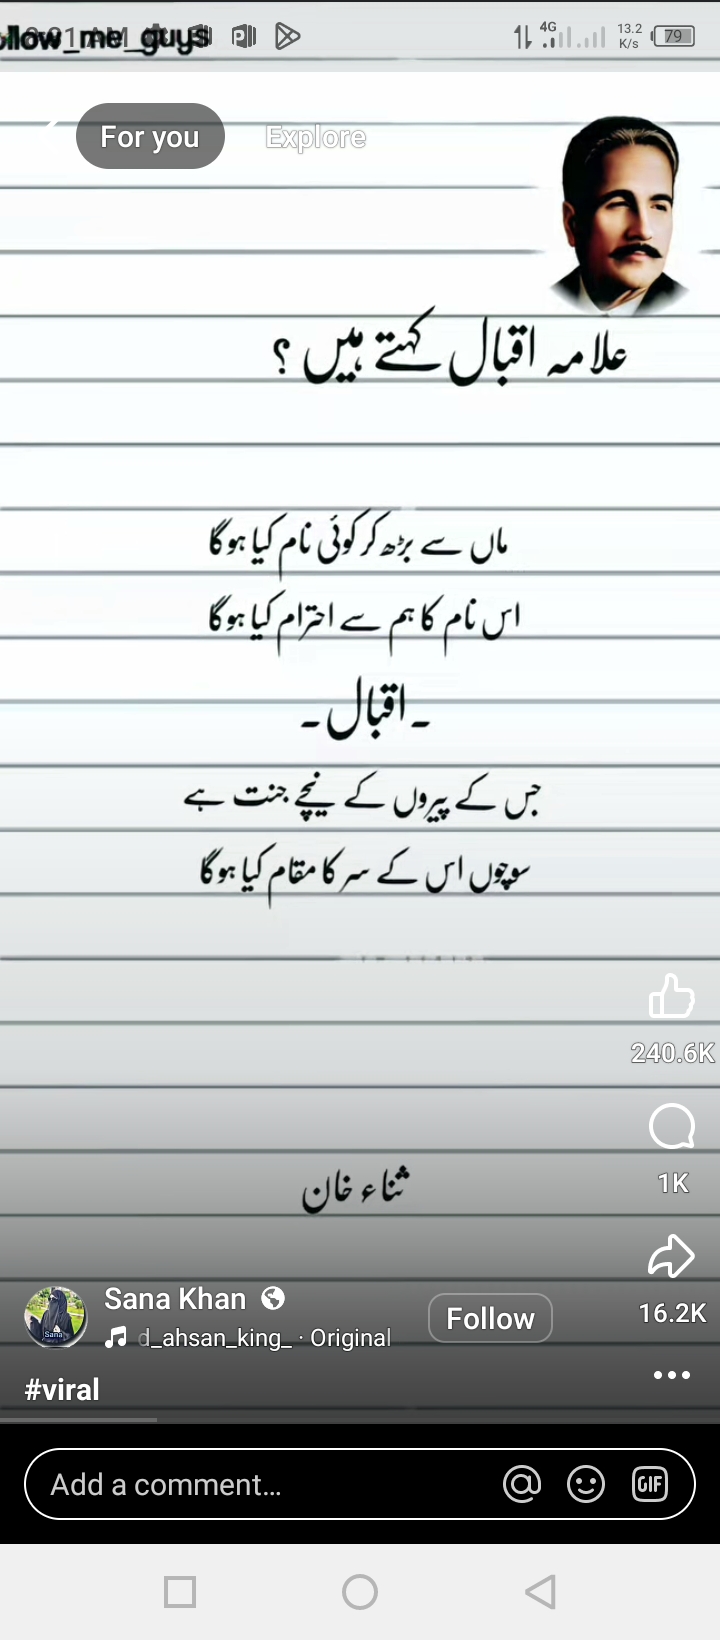 ollow_me_guys
4G
13.2
K/s
79
For you
Explore
علامہ اقبال کہتے ہیں ؟
ماں سے بڑھ کر کوئی نام کیا ہوگا
اس نام کا ہم سے احترام کیا ہوگا
۔اقبال۔
جس کے پیروں کے نیچے جنت ہے
سوچوں اس کے سر کا مقام کیا ہوگا
240.6K
1K
ثناء خان
Sana Khan
Follow
16.2K
d_ahsan_king_ · Original
#viral
Add a comment...
GIF